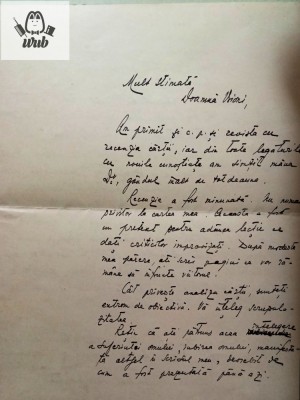 wub
Mult stimată
Doamnă
Am primit și c.p. și revista cu
recenzia cărții, iar din toate legăturile
cu noile cunoștințe am simțit mâna
Dv, gândul înalt de totdeauna.
Recenzia a fost minunată. Nu numai
privitor la cartea mea. Aceasta a fost
un pretext pentru adânca lecție ce
dați criticilor improvizați. După modesta
mea părere, ați scris pagini ce vor ră-
mâne să înfrunte vâltoarea.
Cât privește analiza cărții, sunteți
extrem de obiectivă. Vă înțeleg scrupulo-
zitatea
Rețin că ați pătruns acea înțelegere
a suferinței omului, iubirea omului, manifesta-
tă astfel în scrisul meu, deosebit de
cum a fost prezentată până azi.